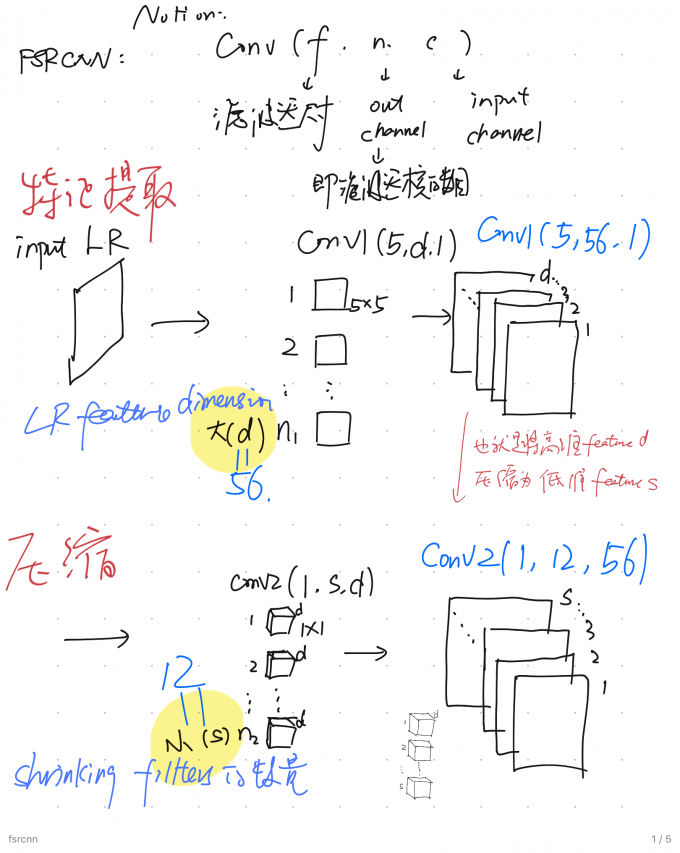 Notion:
FSRCNN:
Conv (f. n. c)
滤波器尺寸
out channel
input channel
即滤波器核的数目
特征提取
input LR
Conv1(5,d.1)
Conv1(5,56.1)
1
5×5
2
n1
d
3
2
1
LR feature dimension
大(d)
56.
也就是将高维feature d
压缩为低维features
压缩
Conv2(1.s.d)
Conv2(1,12,56)
1
d
1×1
2
d
n2
d
s
3
2
1
12
(s)
shrinking filters 的数量
1
2
s
fsrcnn
1 / 5